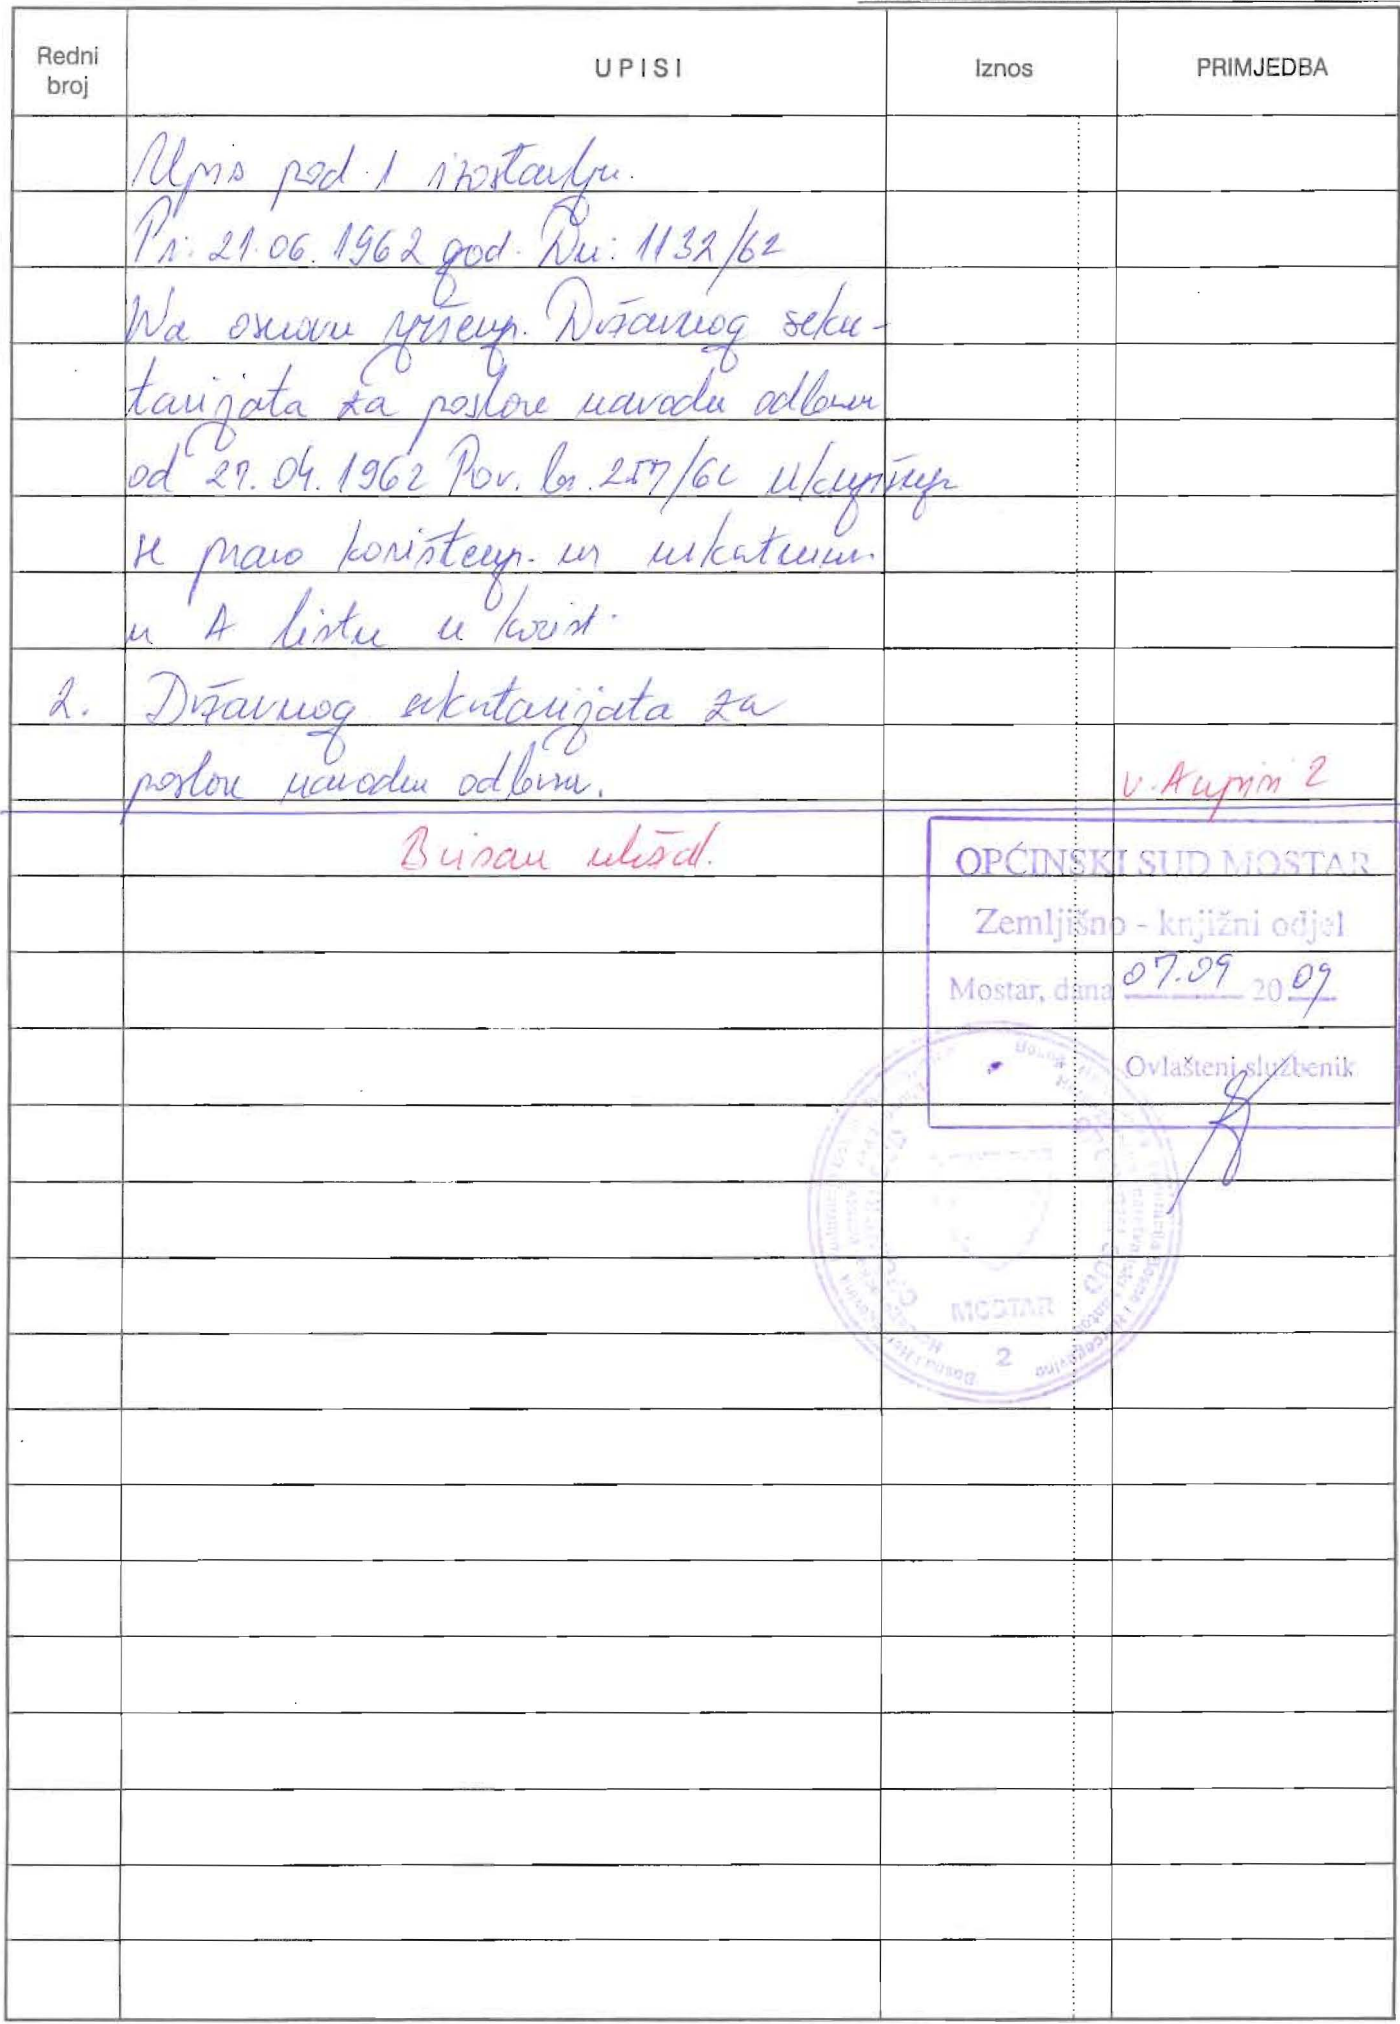 Redni broj
UPISI
Iznos
PRIMJEDBA
Upis pod 1 izostavlja.
Pr: 21.06.1962 god. Dn: 1132/62
Na osnovu Državnog sekre-
tarijata za poslove narodne odbrane
od 27.04.1962 Pov. br. 257/62
se pravo
u A listu u korist
2. Državnog sekretarijata za
poslove narodne odbrane.
v. A 2
Brisan
OPĆINSKI SUD MOSTAR
Zemljišno - knjižni odjel
Mostar, dana 07.09 2009
Ovlašteni službenik
MOSTAR
2